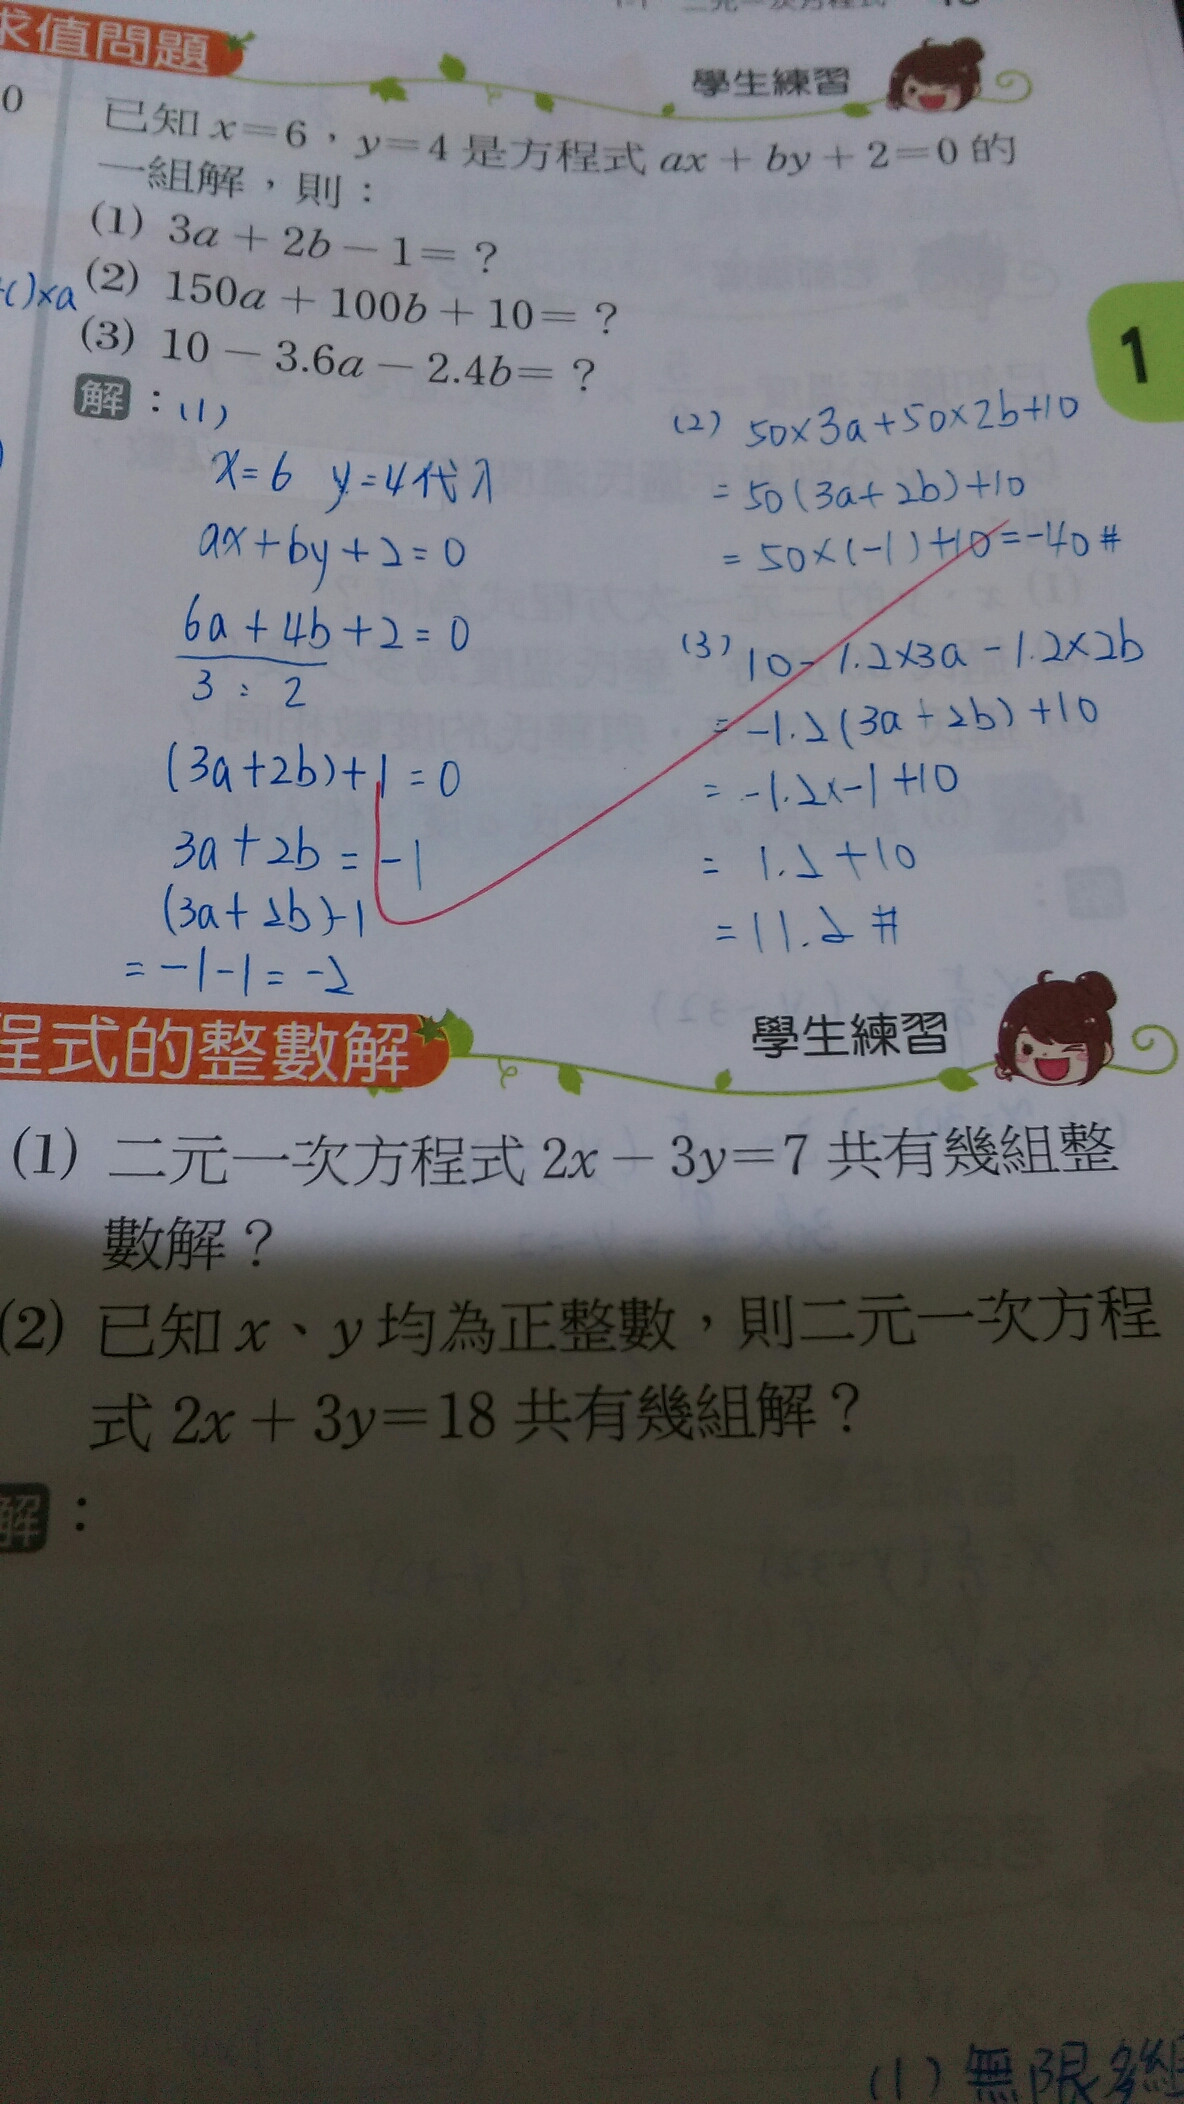 求值問題
學生練習
0
已知x=6，y=4是方程式ax+by+2=0的
一組解，則：
(1) 3a+2b-1=？
(2) 150a+100b+10=？
(3) 10-3.6a-2.4b=？
)×a
1
解：(1)
x=6 y=4代入
ax+by+2=0
6a+4b+2=0
3 : 2
(3a+2b)+1=0
3a+2b=-1
(3a+2b)-1
=-1-1=-2
(2) 50×3a+50×2b+10
=50(3a+2b)+10
=50×(-1)+10=-40#
(3) 10-1.2×3a-1.2×2b
=-1.2(3a+2b)+10
=-1.2×-1+10
=1.2+10
=11.2#
程式的整數解
學生練習
(1) 二元一次方程式2x-3y=7共有幾組整
數解？
(2) 已知x、y均為正整數，則二元一次方程
式2x+3y=18共有幾組解？
解：
(1)無限多組